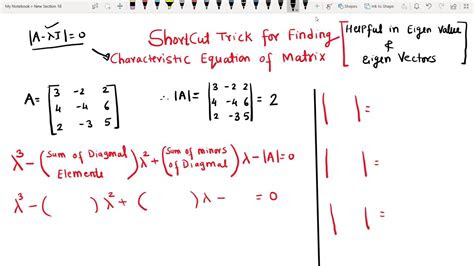 My Notebook > New Section 18
|A-λI|=0
ShortCut Trick for Finding
Characteristic Equation of Matrix
[Helpful in Eigen Value
&
Eigen Vectors]
A= [3 -2 2
4 -4 6
2 -3 5]
∴ |A| = |3 -2 2
4 -4 6
2 -3 5| = 2
λ³ - (Sum of Diagmal Elements) λ² + (Sum of minors of Diagmal) λ - |A| = 0
λ³ - ( ) λ² + ( ) λ - = 0
| | =
| | =
| | =